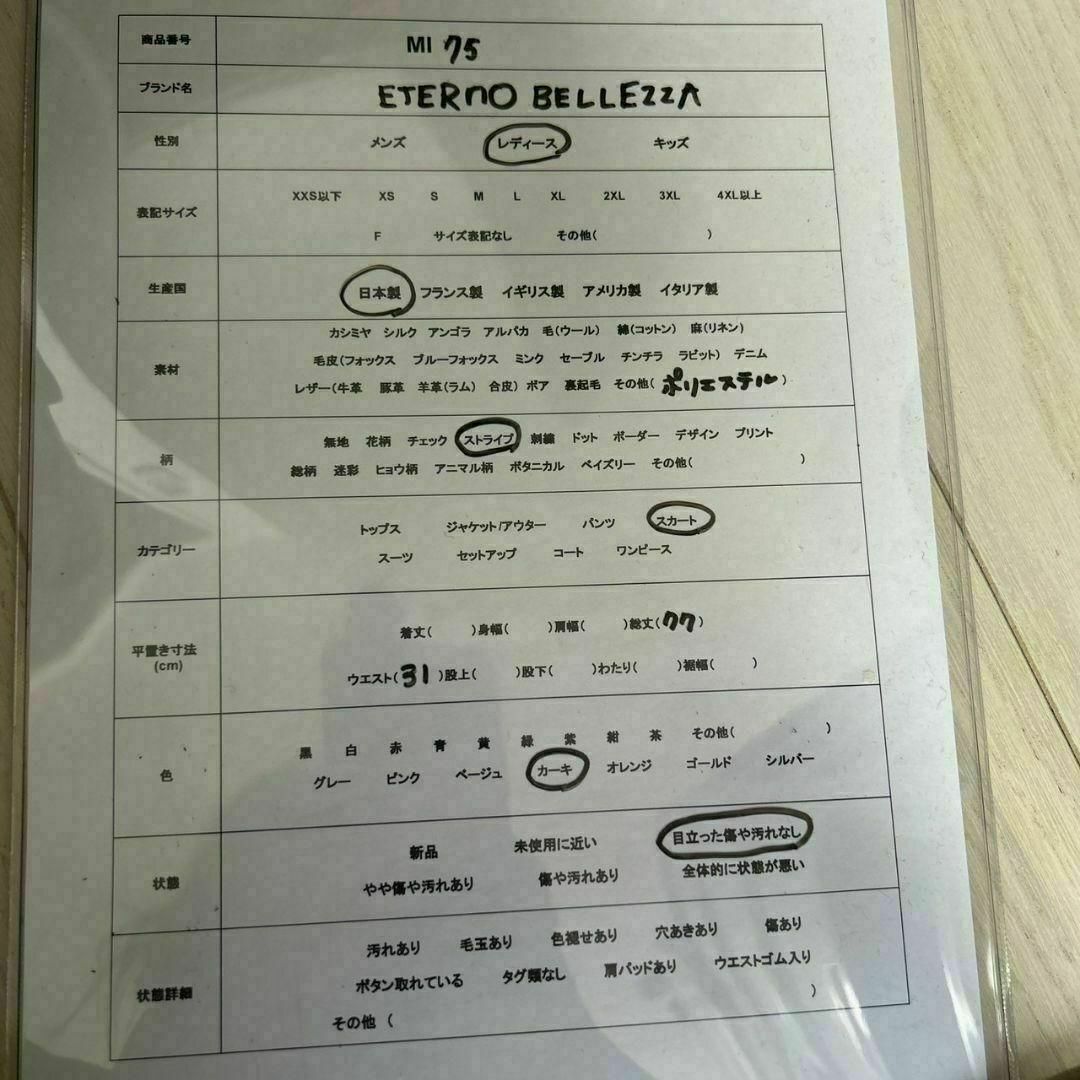 商品番号 MI 75
ブランド名 ETERNO BELLEZZA
性別 メンズ レディース キッズ
表記サイズ XXS以下 XS S M L XL 2XL 3XL 4XL以上
F サイズ表記なし その他( )
生産国 日本製 フランス製 イギリス製 アメリカ製 イタリア製
素材 カシミヤ シルク アンゴラ アルパカ 毛(ウール) 綿(コットン) 麻(リネン)
毛皮(フォックス ブルーフォックス ミンク セーブル チンチラ ラビット) デニム
レザー(牛革 豚革 羊革(ラム) 合皮) ボア 裏起毛 その他( ポリエステル )
柄 無地 花柄 チェック ストライプ 刺繍 ドット ボーダー デザイン プリント
総柄 迷彩 ヒョウ柄 アニマル柄 ボタニカル ペイズリー その他( )
カテゴリー トップス ジャケット/アウター パンツ スカート
スーツ セットアップ コート ワンピース
平置き寸法 (cm) 着丈( )身幅( )肩幅( )総丈(77)
ウエスト(31)股上( )股下( )わたり( )裾幅( )
色 黒 白 赤 青 黄 緑 紫 紺 茶 その他( )
グレー ピンク ベージュ カーキ オレンジ ゴールド シルバー
状態 新品 未使用に近い 目立った傷や汚れなし
やや傷や汚れあり 傷や汚れあり 全体的に状態が悪い
状態詳細 汚れあり 毛玉あり 色褪せあり 穴あきあり 傷あり
ボタン取れている タグ類なし 肩パッドあり ウエストゴム入り
その他 ( )